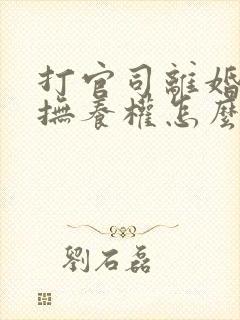 打官司離婚
撫養權怎麼
劉石磊